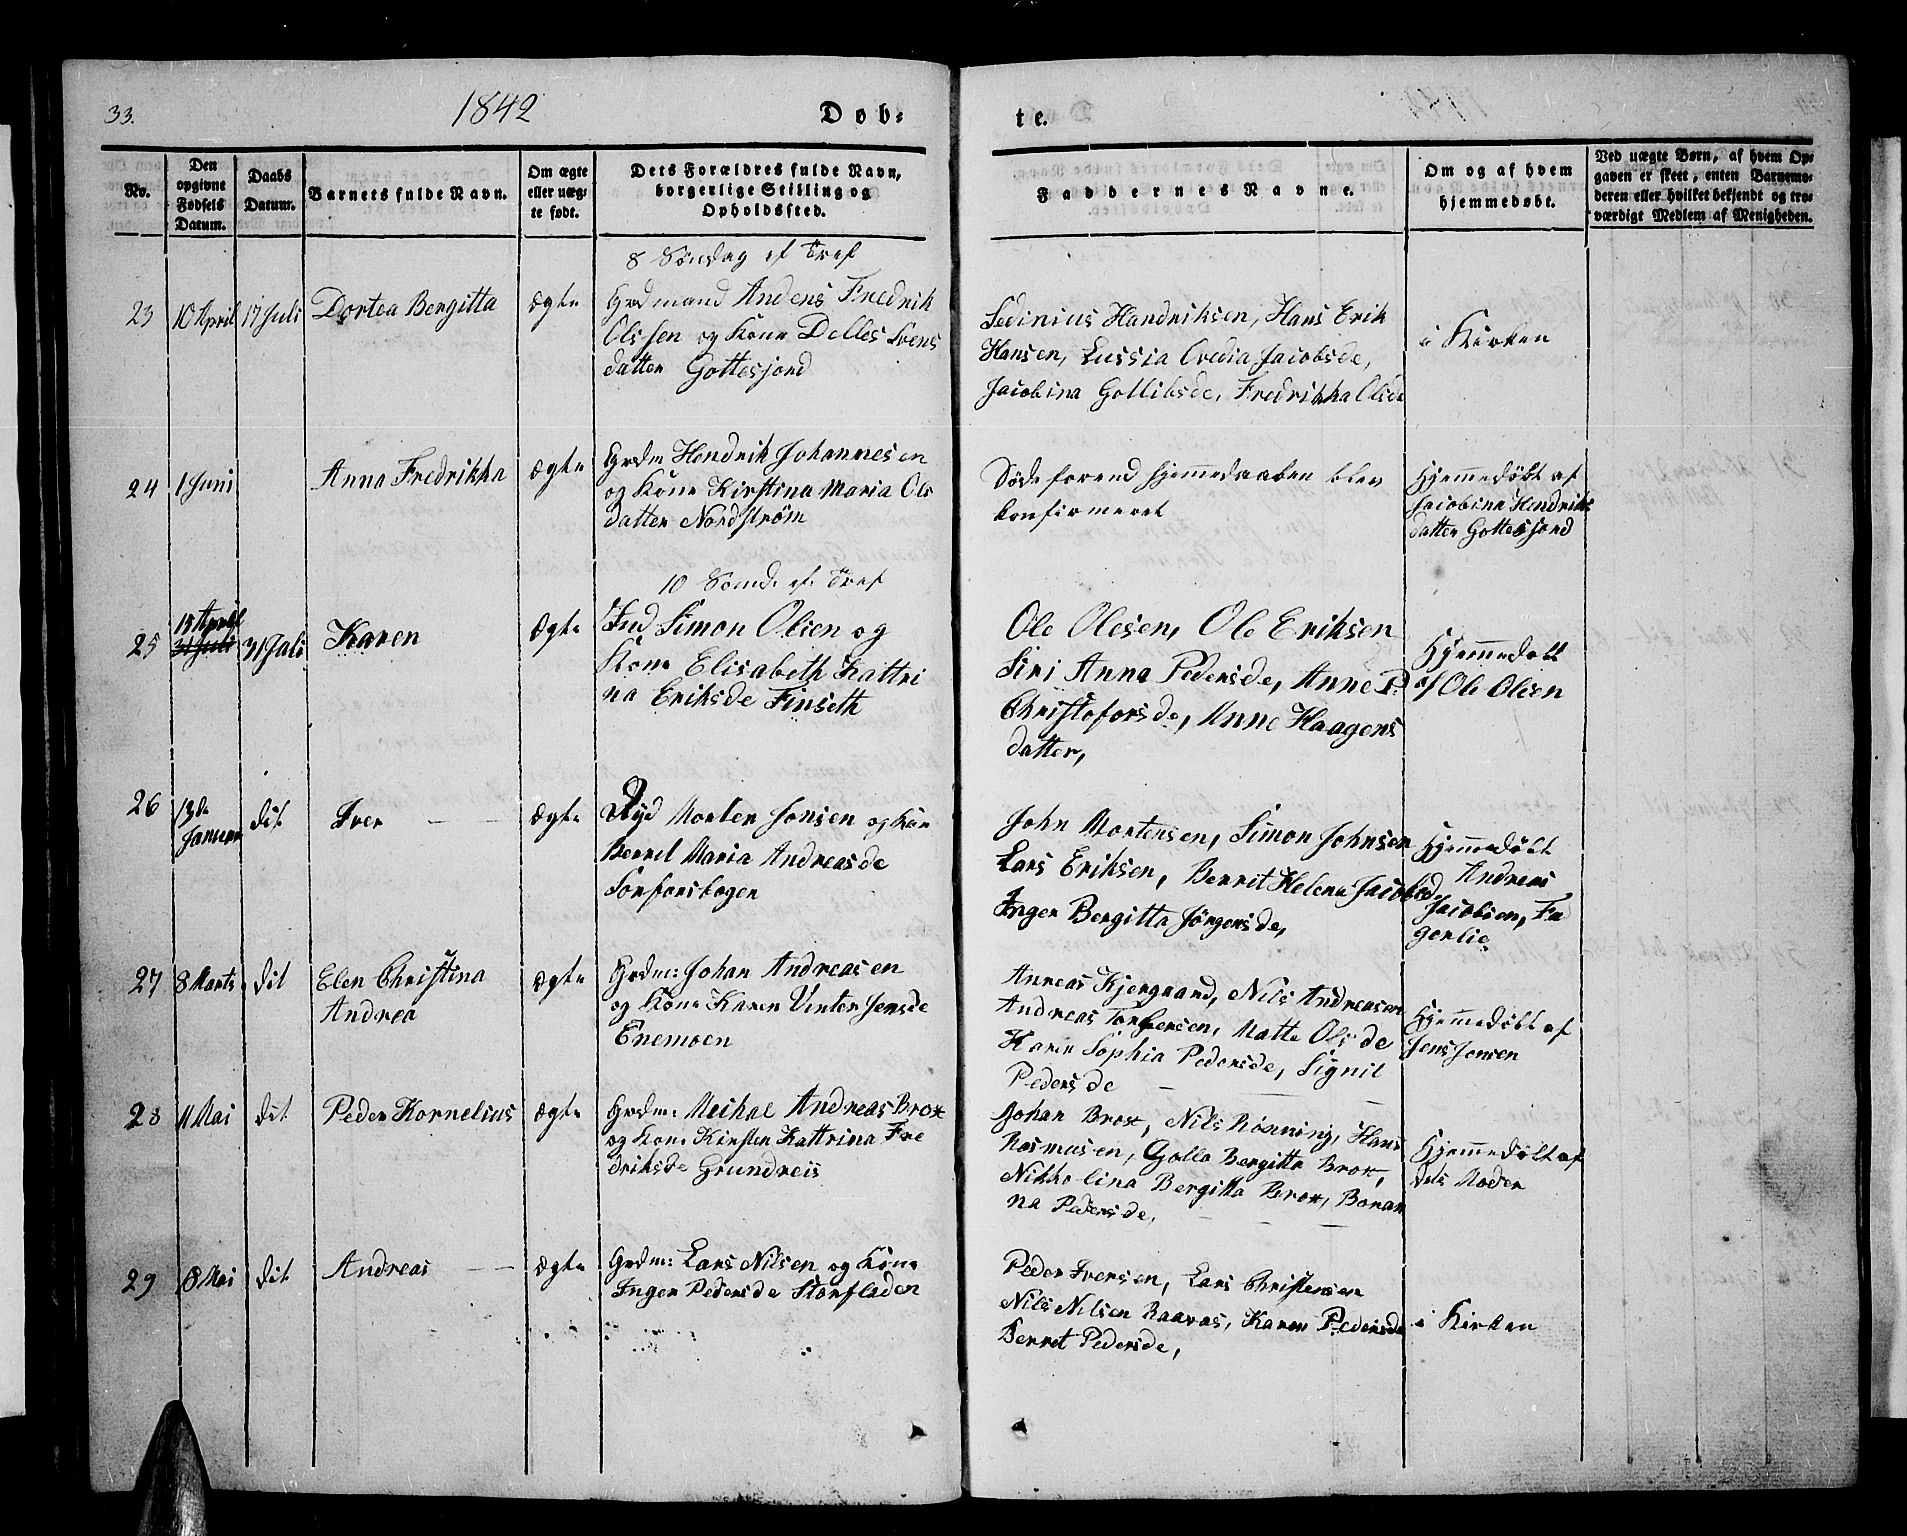 33.
1842
Døb-
te.
No.
Den
opgivne
Fødsels
Datum.
Daabs
Datum.
Barnets fulde Navn.
Om ægte
eller uæg-
te født.
Dets Forældres fulde Navn,
borgerlige Stilling og
Opholdssted.
Faddernes Navne.
Om og af hvem
hjemmedøbt.
Ved uægte Børn, af hvem Op-
gaven er skeet, enten Barnemo-
deren eller hvilket bekjendt og tro-
værdigt Medlem af Menigheden.
8 Søndag ef Tref
23
10 April
17 Juli
Dortea Bergitta
ægte
Grdmand Andens Fredrik
Olssen og Kone Delles Svens
datter Gottesjord
Sedinius Handriksen, Hans Erik
Hansen, Lussia Ovedia Jacobsde,
Jacobina Gollibsde, Fredrikka Olsde
i Kirken
24
1 Juni
Anna Fredrikka
ægte
Grdm Hendrik Johannesen
og Kone Kirstina Maria Ols
datter Nordstrøm
Døde forend hjemmedaaben blev
konfirmeret
Hjemmedøbt af
Jacobina Hendriks
datter Gottesjord
10 Sønd. ef. Tref
25
15 April
31 Juli
31 Juli
Karen
ægte
Ind Simon Olsen og
Kone Elisabeth Kattri
na Eriksde Finseth
Ole Olesen, Ole Eriksen
Siri Anna Pedersde, Anne P.
Christoforsde, Anne Haagens
datter,
Hjemmedøbt
af Ole Olsen
26
13de
Januar
dit
Iver
ægte
Ryd Morten Jonsen og Kon
Berret Maria Andreasde
Sorforsbogen
John Mortensen, Simon Johnsen
Lars Eriksen, Berrit Helena Jacobsd
Inger Bergitta Jørgensde,
Hjemmedøbt
Andreas
Jacobsen, Fa
gerlie
27
8 Marts
dit
Elen Christina
Andrea
ægte
Grdm: Johan Andreasen
og Kone Karen Vinter Jensde
Enemoen
Anreas Kjergaard, Nils Andreasen
Andreas Torgersen, Matte Olsde
Karen Sophia Pedersde, Signil
Pedersde
Hjemmedøbt af
Jens Jonsen
28
11 Mai
dit
Peder Kornelius
ægte
Grdm: Meikal Andreas Brox
og Kone Kirsten Kattrina Fre
driksde Grundreis
Johan Brox, Nils Rønning, Hans
Rasmusen, Golla Bergitta Brox,
Nikkolina Bergitta Brox, Boran
na Pedersde,
Hjemmedøbt af
dets Moder
29
8 Mai
dit
Andreas
ægte
Grdm: Lars Nilsen og Kone
Inger Pedersde Storfladen
Peder Iversen, Lars Christensen
Nils Nilsen Raavas, Karen Pedersde
Berret Pedersde,
i Kirken